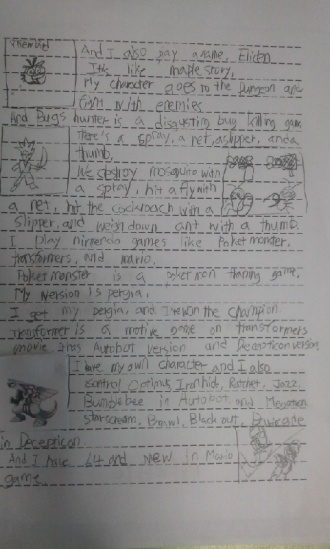 And I also pay a game, Eliden
It's like maple story,
My character goes to the Dungeon and
fight with enemies
And Bugs hunter is a disgusting bug killing game
There's a spray, a net, a slipper, and a
thumb,
We destroy mosquito with
a spray, hit a fly with
a net, hit the cockroach with a
slipper, and weigh down ant with a thumb.
I play nintendo games like Poket monster,
transformers, and mario.
Poket monster is a pokemon taming game,
My version is pergia,
I get my pergia, and I won the champion
Transformer is a motive game on transformers
movie Its Autobot version and Decepticon version
I have my own character and I also
control Optimus, Iron hid, Ratchet, Jazz,
Bumblebee in Autobot, and Megatron
Starscream, Brawl, Black out, Barricade
in Decepticon
And I have 64 and New in Mario
game